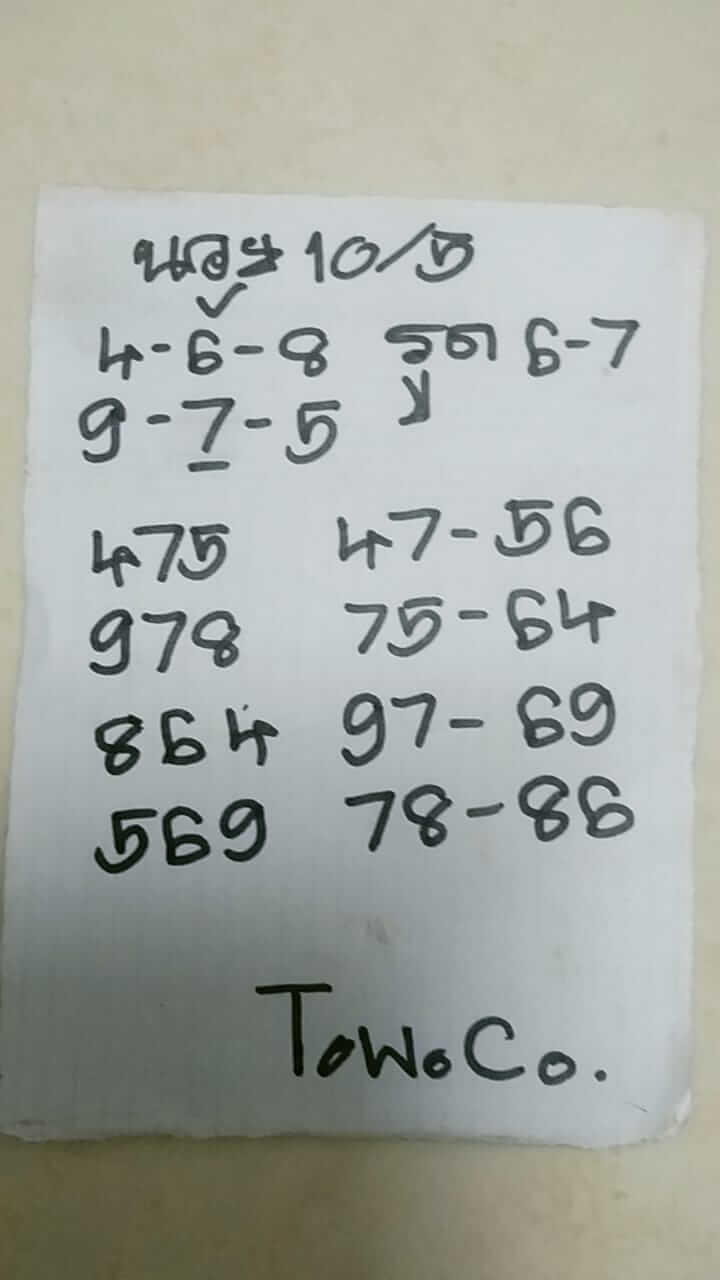 นอย 10/5
4-6-8 รูด 6-7
9-7-5
475 47-56
978 75-64
864 97-69
569 78-86
ToWoCo.